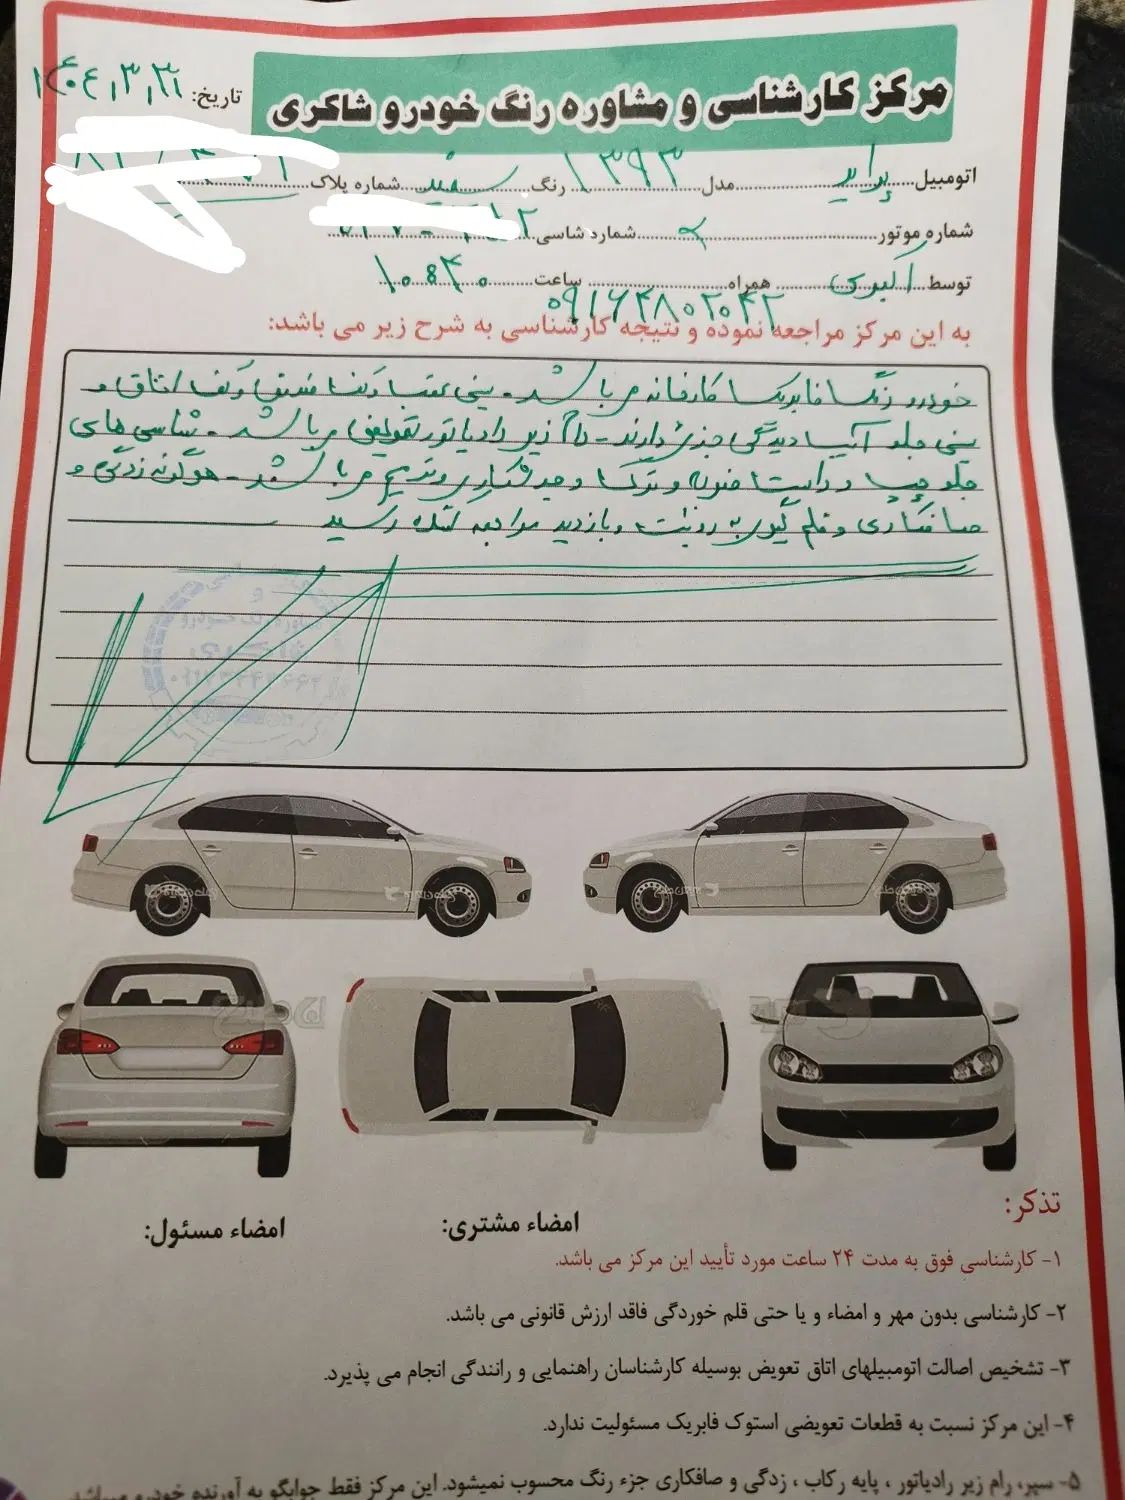 مرکز کارشناسی و مشاوره رنگ خودرو شاکری
تاریخ: ۱۴۰۴/۳/۳۱
اتومبیل پراید مدل ۱۳۹۳ رنگ سفید شماره پلاک
شماره موتور شماره شاسی
توسط اکبری همراه ۰۹۱۶۴۸۰۲۰۴۲ ساعت ۱۰:۴۰
به این مرکز مراجعه نموده و نتیجه کارشناسی به شرح زیر می باشد:
خودرو رنگ فابریک کارخانه می باشد - سینی عقب و کف صندوق و کف اتاق و
سینی جلو آسیب دیدگی جزئی دارند - رام زیر رادیاتور تعویض می باشد - شاسی های
جلو چپ و راست ضربه و ترک و جوشکاری و ترمیم می باشد - هرگونه زدگی و
صافکاری و قلم گیری به رویت و بازدید مراجعه کننده رسید
امضاء مشتری:
امضاء مسئول:
تذکر:
۱- کارشناسی فوق به مدت ۲۴ ساعت مورد تأیید این مرکز می باشد.
۲- کارشناسی بدون مهر و امضاء و یا حتی قلم خوردگی فاقد ارزش قانونی می باشد.
۳- تشخیص اصالت اتومبیلهای اتاق تعویض بوسیله کارشناسان راهنمایی و رانندگی انجام می پذیرد.
۴- این مرکز نسبت به قطعات تعویضی استوک فابریک مسئولیت ندارد.
۵- سپر، رام زیر رادیاتور ، پایه رکاب ، زدگی و صافکاری جزء رنگ محسوب نمیشود. این مرکز فقط جوابگو به آورنده خودرو میباشد